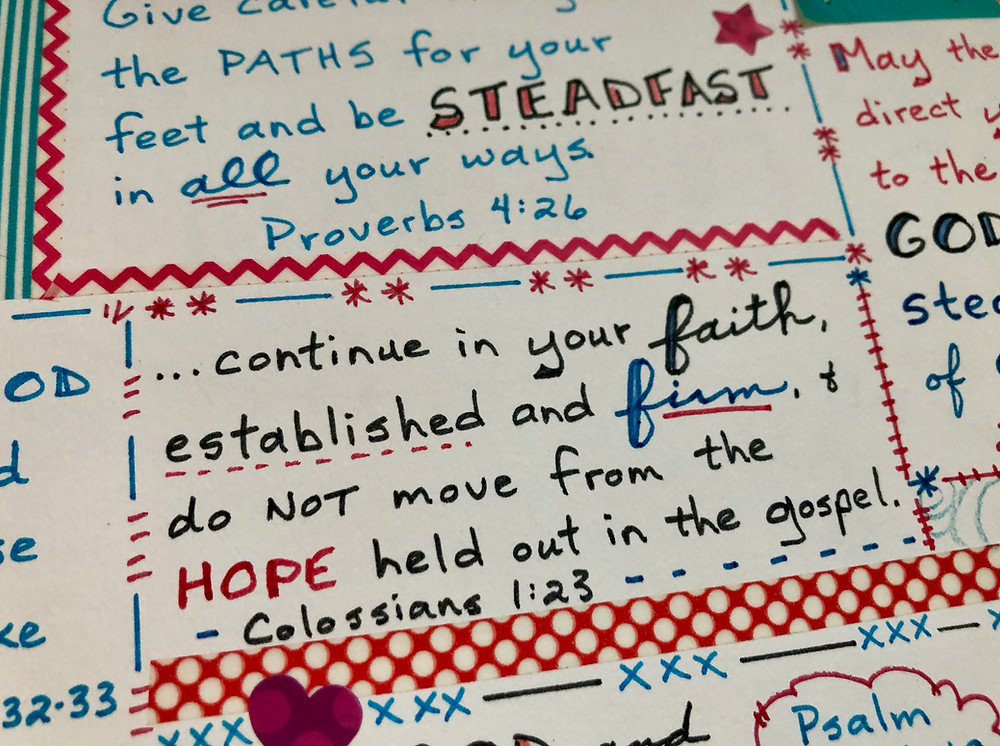 Give
the PATHS for your
feet and be STEADFAST
in all your ways.
Proverbs 4:26
May the
direct
to the
GOD
of
...continue in your faith,
established and firm, &
do NOT move from the
HOPE held out in the gospel.
- Colossians 1:23
32-33
XXX XXX XXX XXX
Psalm
and